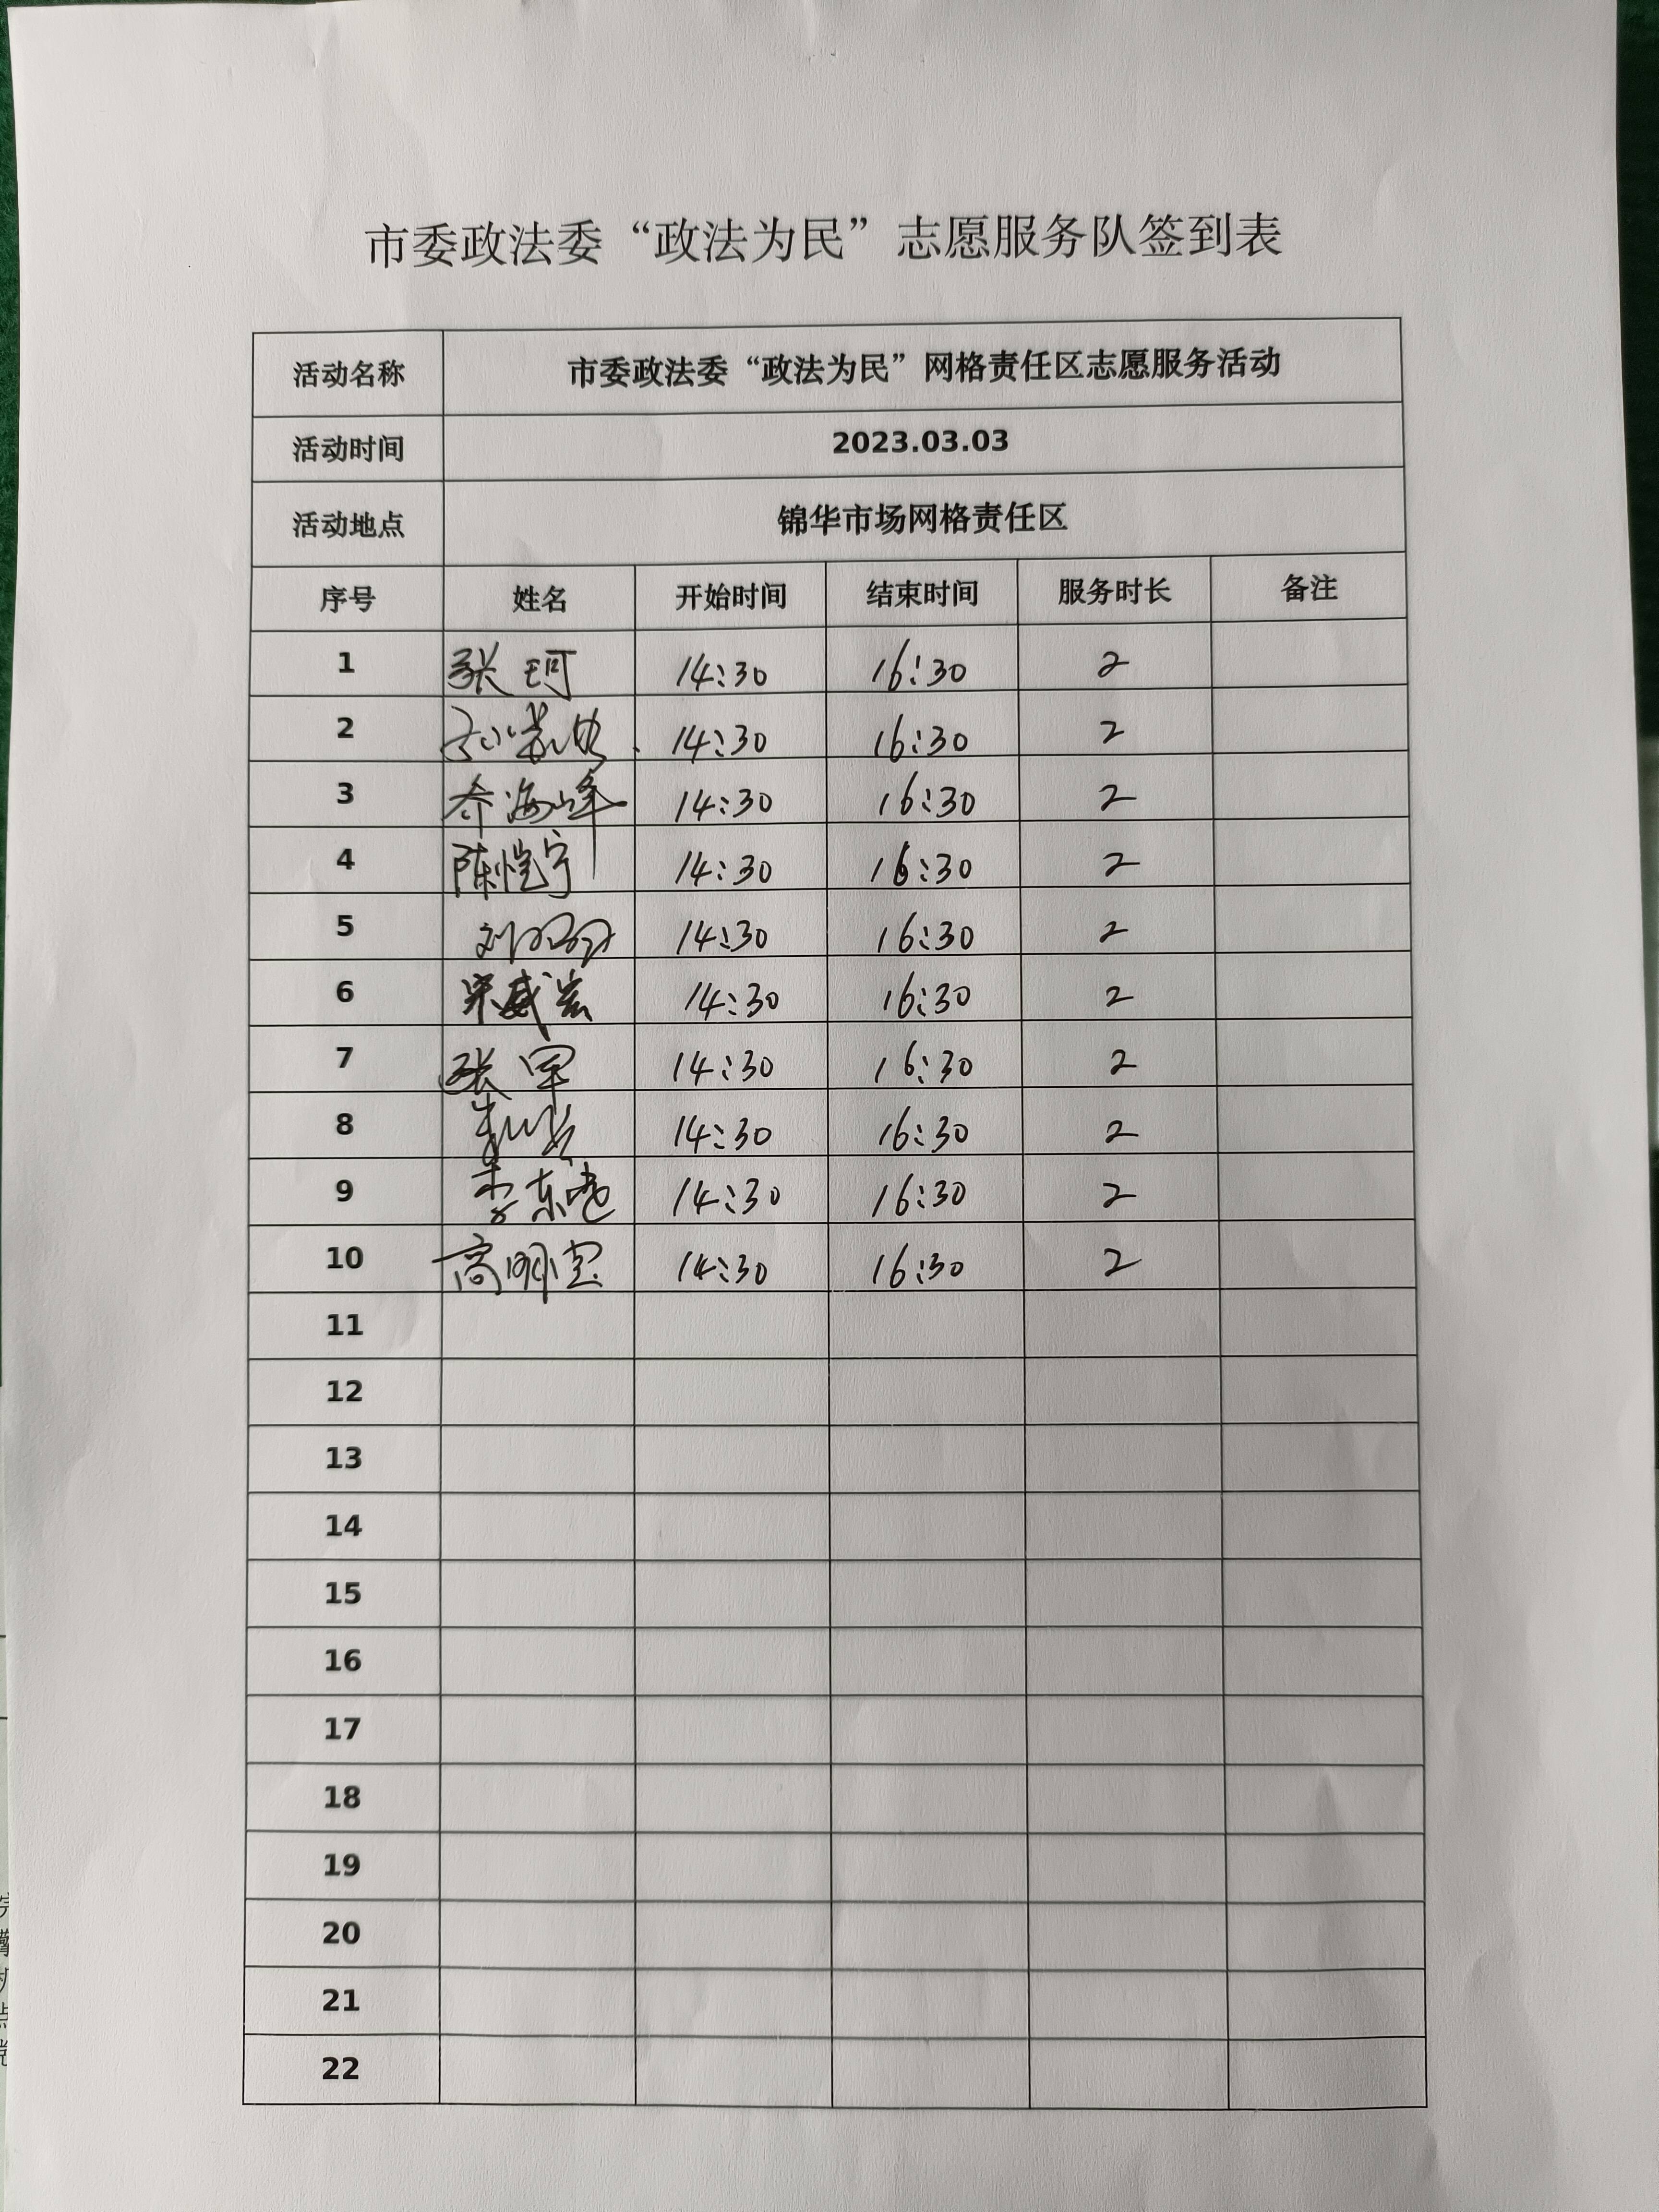 市委政法委“政法为民”志愿服务队签到表
活动名称 市委政法委“政法为民”网格责任区志愿服务活动
活动时间 2023.03.03
活动地点 锦华市场网格责任区
序号 姓名 开始时间 结束时间 服务时长 备注
1 张珂 14:30 16:30 2
2 14:30 16:30 2
3 海峰 14:30 16:30 2
4 陈恺宁 14:30 16:30 2
5 刘 14:30 16:30 2
6 宋威宏 14:30 16:30 2
7 张军 14:30 16:30 2
8 14:30 16:30 2
9 李东 14:30 16:30 2
10 高明宝 14:30 16:30 2
11
12
13
14
15
16
17
18
19
20
21
22